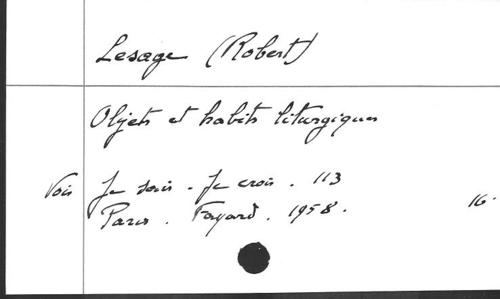 Lesage (Robert)
Objets et habits liturgiques
Voir Je sais - Je crois . 113
Paris . Fayard . 1958 . 16.